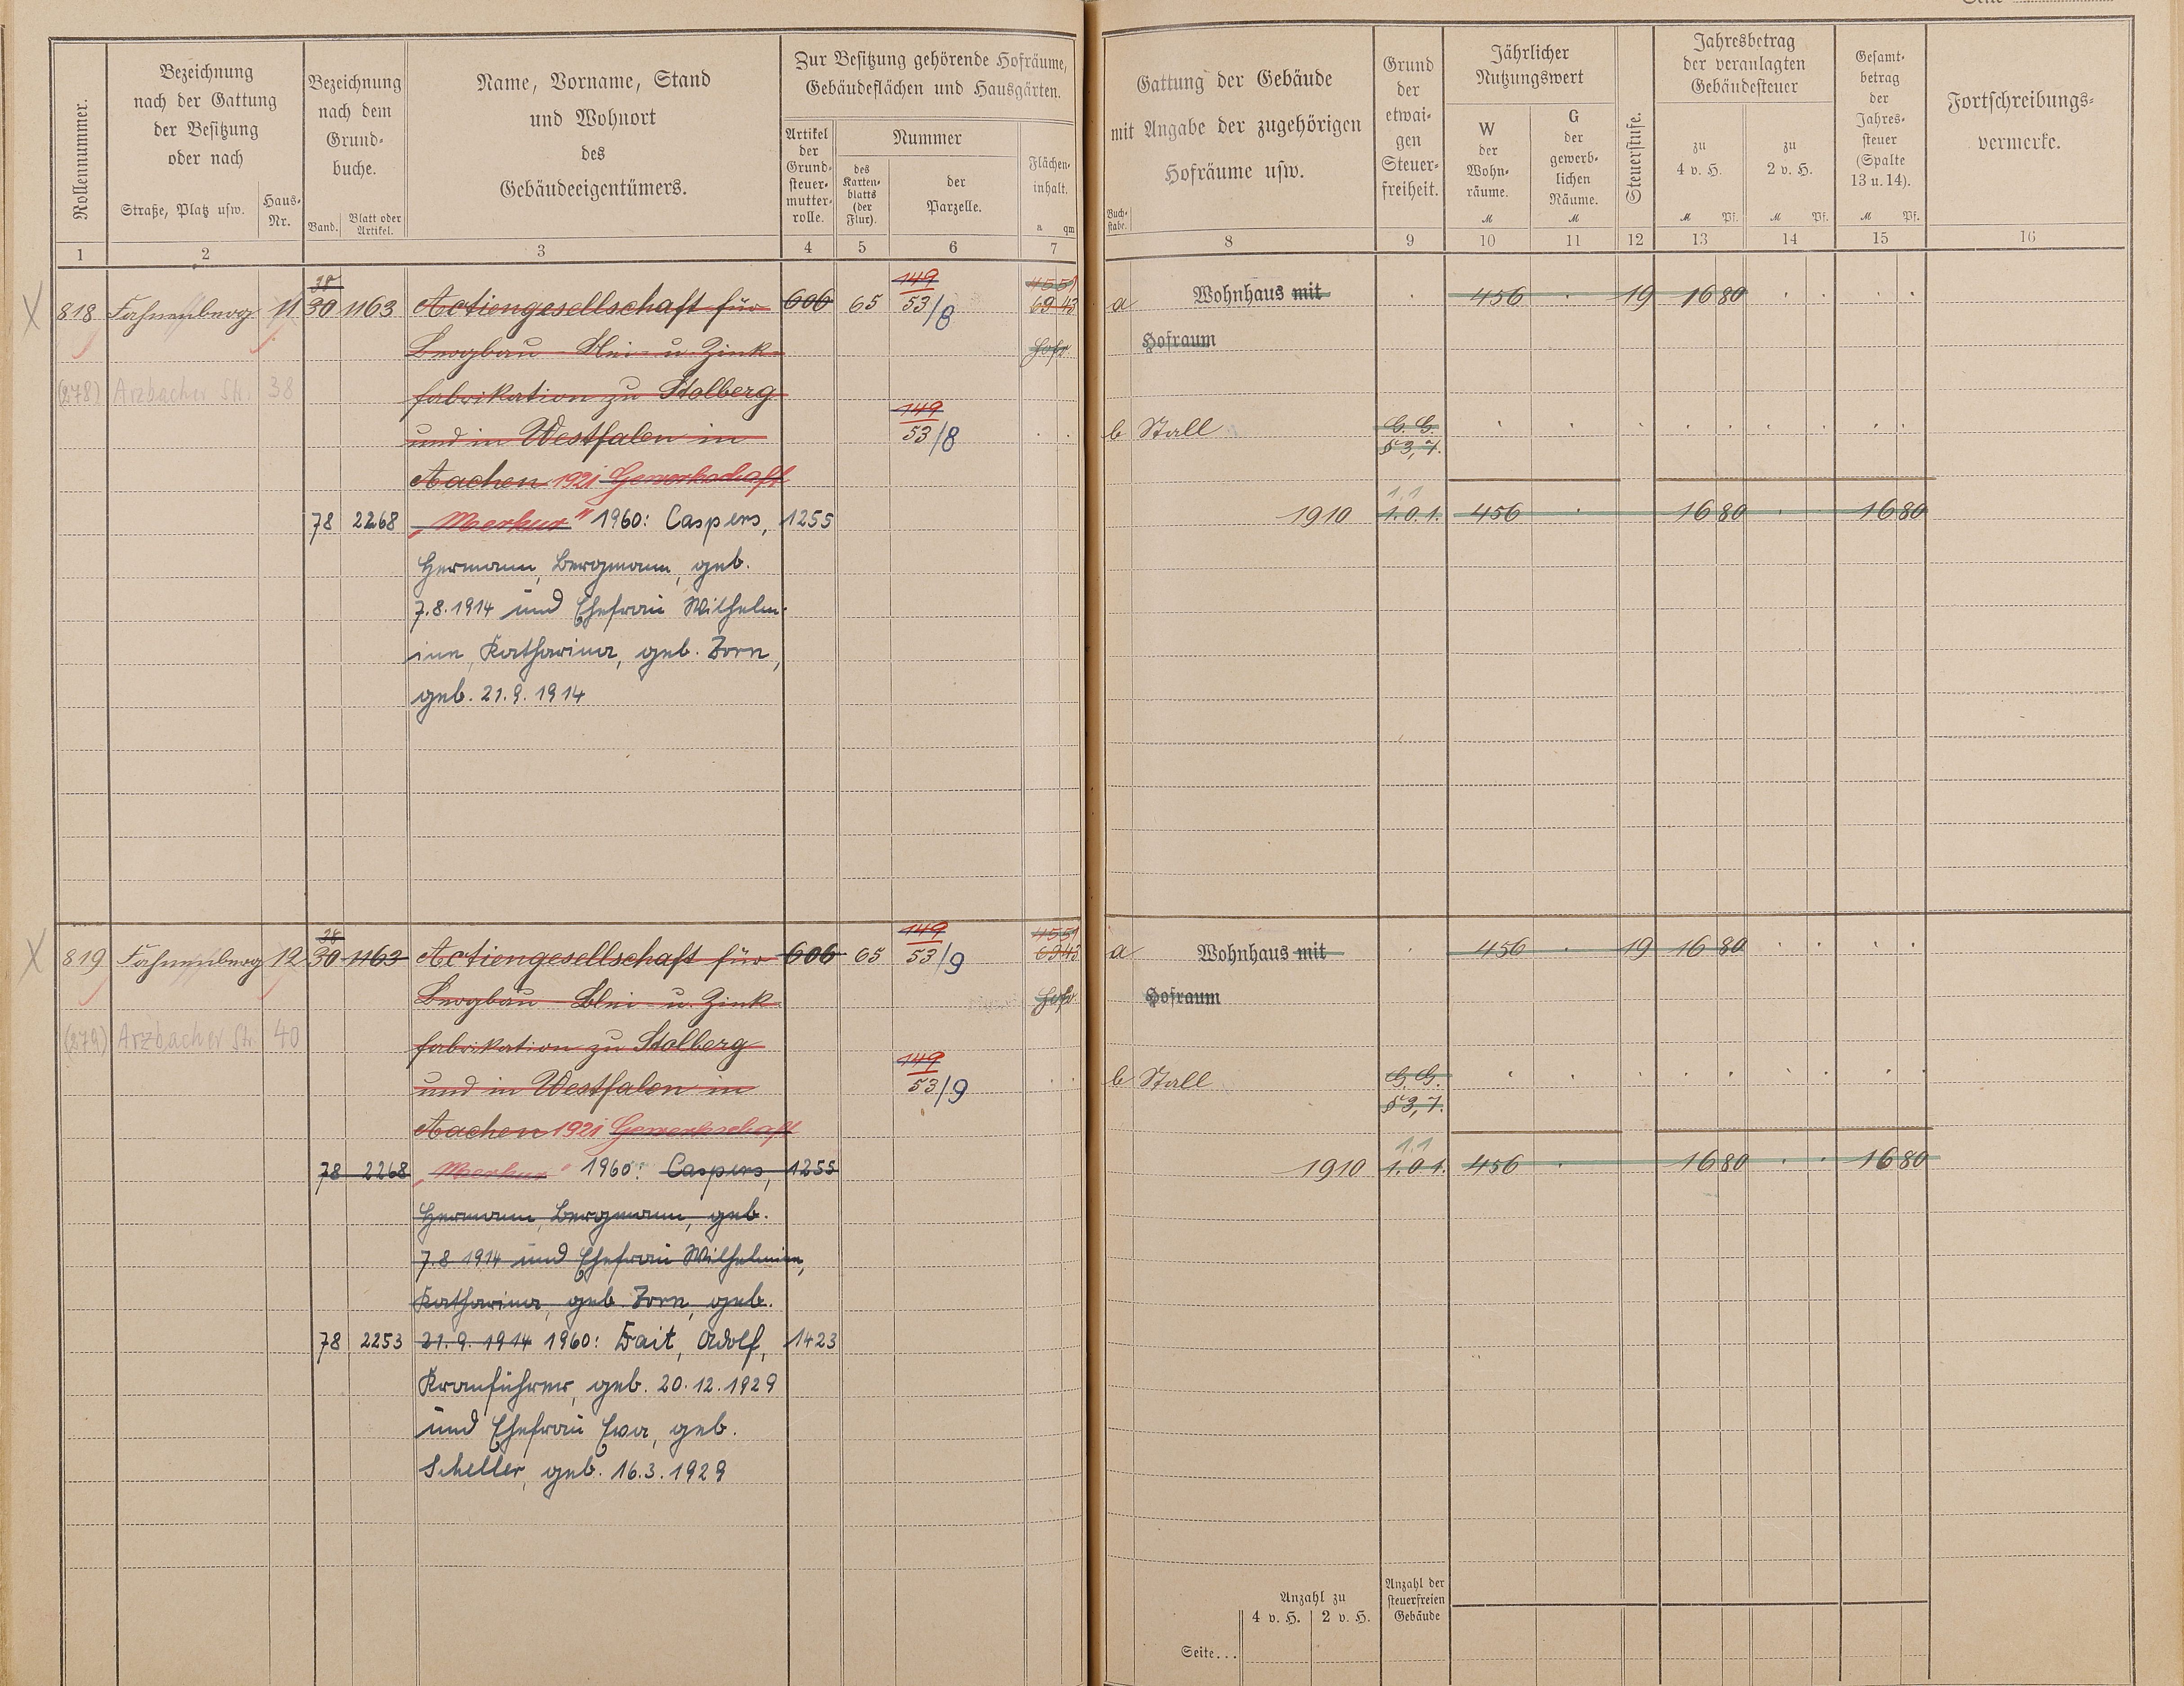 Seite
Rollennummer.
Bezeichnung
nach der Gattung
der Besitzung
oder nach
Straße, Platz usw.
Haus-
Nr.
Bezeichnung
nach dem
Grund-
buche.
Band.
Blatt oder
Artikel.
Name, Vorname, Stand
und Wohnort
des
Gebäudeeigentümers.
Zur Besitzung gehörende Hofräume,
Gebäudeflächen und Hausgärten.
Artikel
der
Grund-
steuer-
mutter-
rolle.
Nummer
des
Karten-
blatts
(der
Flur).
der
Parzelle.
Flächen-
inhalt.
a qm
1 2 3 4 5 6 7
Gattung der Gebäude
mit Angabe der zugehörigen
Hofräume usw.
Buch-
stabe.
Grund
der
etwai-
gen
Steuer-
freiheit.
Jährlicher
Nutzungswert
W
der
Wohn-
räume.
M
G
der
gewerb-
lichen
Räume.
M
Steuerstufe.
Jahresbetrag
der veranlagten
Gebäudesteuer
zu
4 v. H.
M Pf.
zu
2 v. H.
M Pf.
Gesamt-
betrag
der
Jahres-
steuer
(Spalte
13 u. 14).
M Pf.
Fortschreibungs-
vermerke.
8 9 10 11 12 13 14 15 16
38 149
818 Fahnenberg 11 30 1163 Actiengesellschaft für 606 65 53/8 69 43
Bergbau Blei- u. Zink- Hofr.
(278) Arzbacher Str. 38 fabrikation zu Stolberg
149
und in Westfalen in 53/8
Aachen 1921 Gewerkschaft
78 2268 „Merkur" 1960: Caspers, 1255
Hermann, Bergmann, geb.
7.8.1914 und Ehefrau Wilhelm-
ine, Katharina, geb. Zorn,
geb. 21.9.1914
a Wohnhaus mit 456 19 16 80
Hofraum
b Stall G. G.
§ 3, 7.
1.1
1910 1.0.1. 456 16 80 16 80
38 149
819 Fahnenberg 12 30 1163 Actiengesellschaft für 606 65 53/9 63 43
Bergbau Blei- u. Zink- Hofr.
(279) Arzbacher Str. 40 fabrikation zu Stolberg
149
und in Westfalen in 53/9
Aachen 1921 Gewerkschaft
78 2268 „Merkur" 1960: Caspers, 1255
Hermann, Bergmann, geb.
7.8.1914 und Ehefrau Wilhelmine,
Katharina, geb. Zorn, geb.
78 2253 21.9.1914 1960: Fait, Adolf, 1423
Kranführer, geb. 20.12.1929
und Ehefrau Eva, geb.
Scheller, geb. 16.3.1929
a Wohnhaus mit 456 19 16 80
Hofraum
b Stall G. G.
§ 3, 7.
1.1
1910 1.0.1. 456 16 80 16 80
Anzahl zu
4 v. H. 2 v. H.
Anzahl der
steuerfreien
Gebäude
Seite...